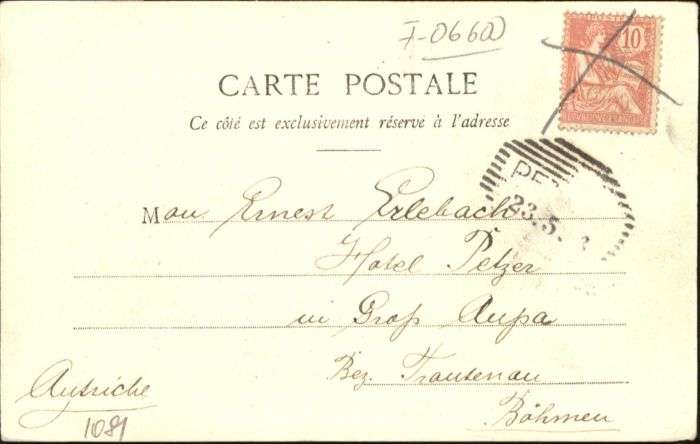 I-0660
10
CARTE POSTALE
Ce côté est exclusivement réservé à l'adresse
Mon Ernest Erlebach
Hotel Petzer
in Groß Aupa
Bez. Trautenau
Böhmen
Autriche
1081
PE
23.5.